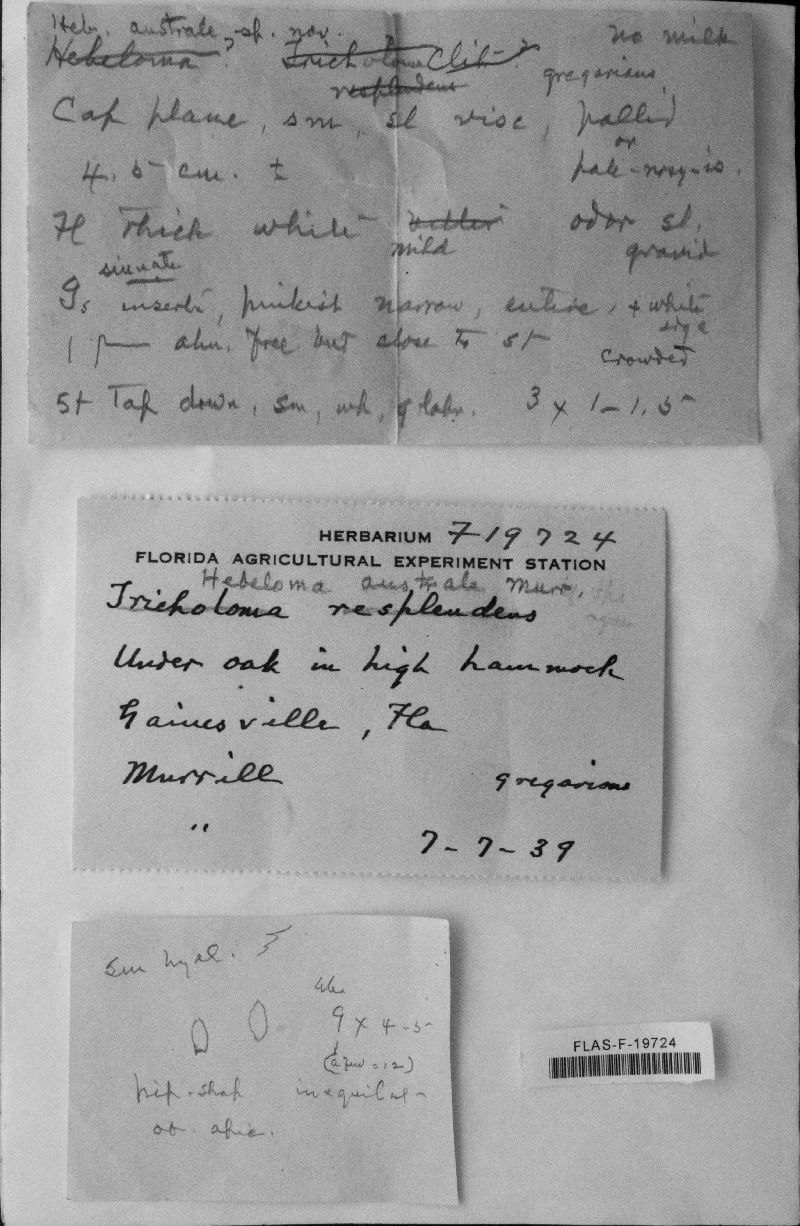 Heb. australe sp. nov. no milk
Hebeloma? Tricholoma Clit.?
resplendens gregarious,
Cap plane, sm, sl visc, pallid
or
4.5 cm. ± pale-rosy-is.
Fl thick white bitter odor sl.
mild
sinuate
Gs inserti, pinkish narrow, entire, + white
edge
alm. free but close to st crowded
St Tap down, sm, wh, glabr. 3 x 1-1.5
HERBARIUM F19724
FLORIDA AGRICULTURAL EXPERIMENT STATION
Hebeloma australe Murr.
Tricholoma resplendens
Under oak in high hammock
Gainesville, Fla
Murrill gregarious
" 7-7-39
sm hyal.
9 x 4-5
(a few = 12)
pip-shap inequilat-
ob. apic.
FLAS-F-19724